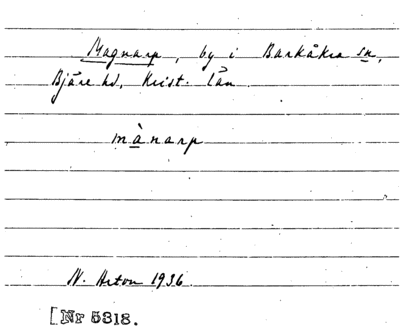 Magnarp, by i Barkåkra sn,
Bjäre hd, Krist. län
mànarp
N. Arton 1936
[Nr 5318.